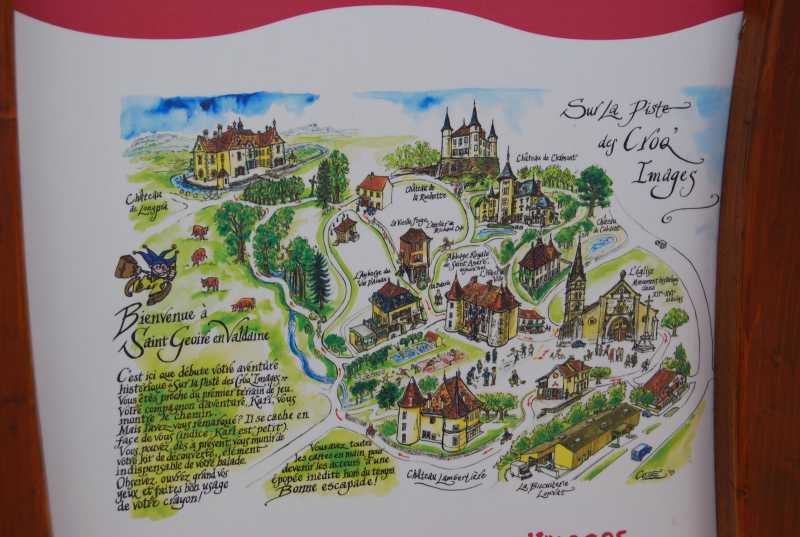 Sur La Piste
des Croq'
Images
Château
de Longpra
Château de
la Rochette
Château de Clermont
La Vieille Forge
L'Auberge
du Val d'Ainan
Abbaye Royale
de Saint André
La Mairie
L'église
Monument historique
classé
XIIe-XVe
siècles
Bienvenue à
Saint Geoire en Valdaine
C'est ici que débute votre aventure
historique "Sur la Piste des Croq'Images".
Vous êtes proche du premier terrain de jeu.
Votre compagnon d'aventure, Kari, vous
montre le chemin.
Mais l'avez-vous remarqué? Il se cache en
face de vous (indice: Kari est petit).
Vous pouvez, dès à présent vous munir de
votre kit de découverte, élément
indispensable de votre balade.
Observez, ouvrez grand vos
yeux et faites bon usage
de votre crayon!
Vous avez toutes
les cartes en main pour
devenir les acteurs d'une
épopée inédite hors du temps
Bonne escapade!
Château Lambertière
La Biscuiterie
Louvat